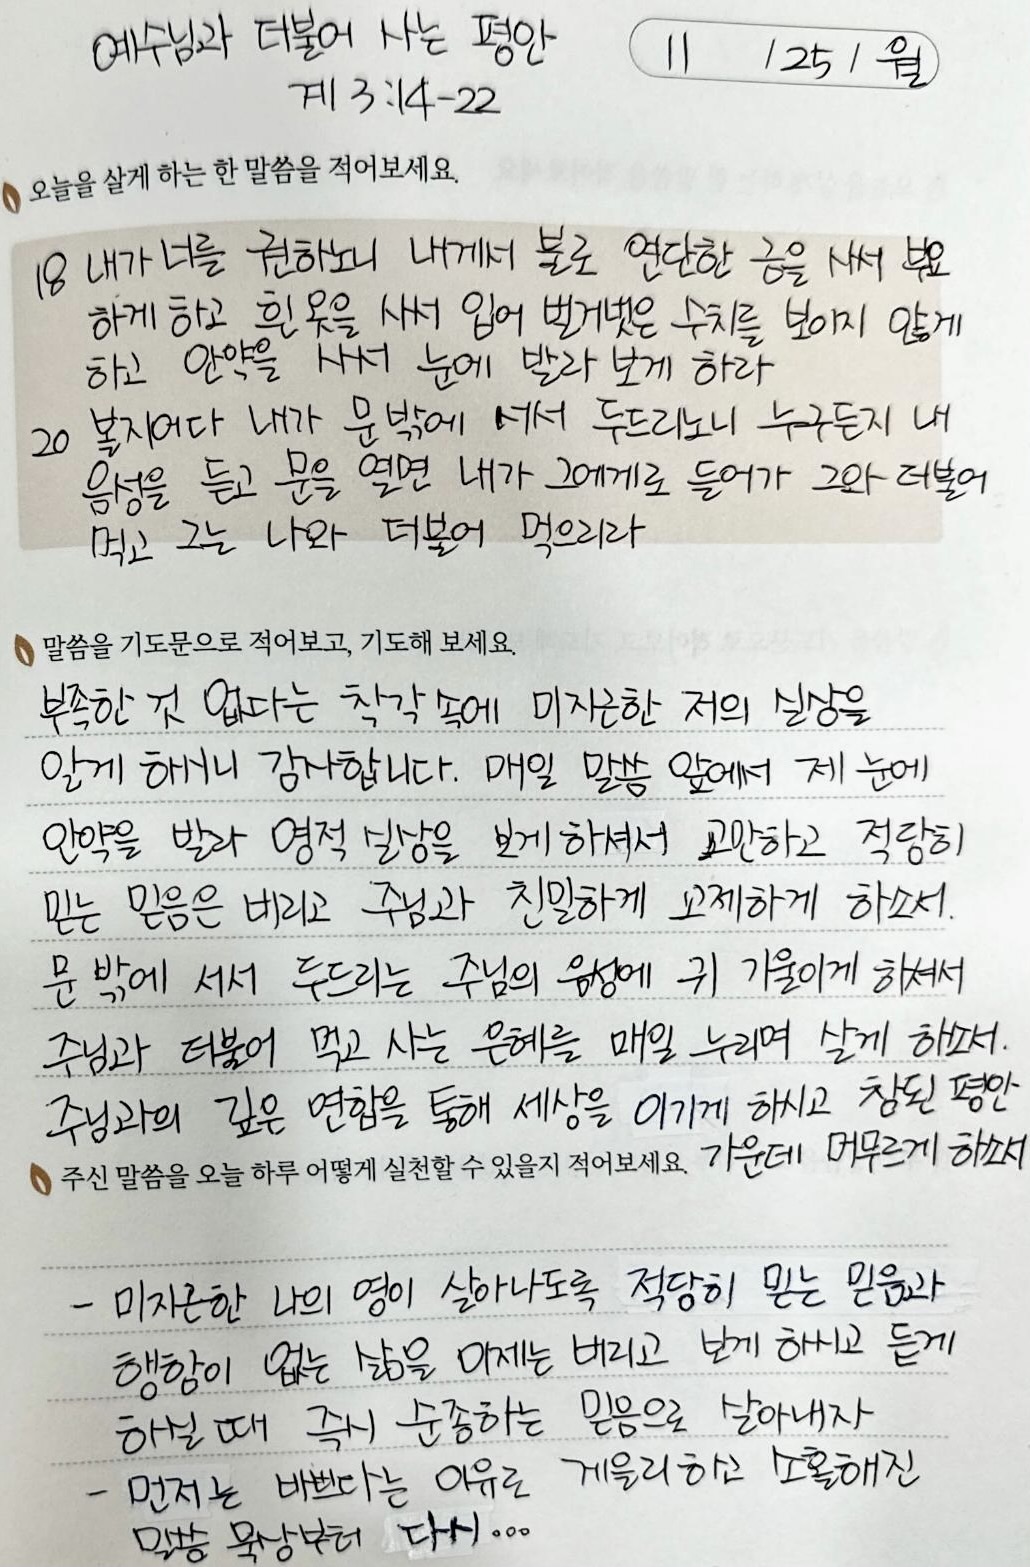 예수님과 더불어 사는 평안
11 / 25 / 월
계 3:14-22
오늘을 살게 하는 한 말씀을 적어보세요.
18 내가 너를 권하노니 내게서 불로 연단한 금을 사서 부요
하게 하고 흰 옷을 사서 입어 벌거벗은 수치를 보이지 않게
하고 안약을 사서 눈에 발라 보게 하라
20 볼지어다 내가 문 밖에 서서 두드리노니 누구든지 내
음성을 듣고 문을 열면 내가 그에게로 들어가 그와 더불어
먹고 그는 나와 더불어 먹으리라
말씀을 기도문으로 적어보고, 기도해 보세요.
부족한 것 없다는 착각 속에 미지근한 저의 실상을
알게 하시니 감사합니다. 매일 말씀 앞에서 제 눈에
안약을 발라 영적 실상을 보게 하셔서 교만하고 적당히
믿는 믿음은 버리고 주님과 친밀하게 교제하게 하소서.
문 밖에 서서 두드리는 주님의 음성에 귀 기울이게 하셔서
주님과 더불어 먹고 사는 은혜를 매일 누리며 살게 하소서.
주님과의 깊은 연합을 통해 세상을 이기게 하시고 참된 평안
가운데 머무르게 하소서
주신 말씀을 오늘 하루 어떻게 실천할 수 있을지 적어보세요.
- 미지근한 나의 영이 살아나도록 적당히 믿는 믿음과
행함이 없는 삶을 이제는 버리고 보게 하시고 듣게
하실 때 즉시 순종하는 믿음으로 살아내자
- 먼저는 바쁘다는 이유로 게을리하고 소홀해진
말씀 묵상부터 다시...